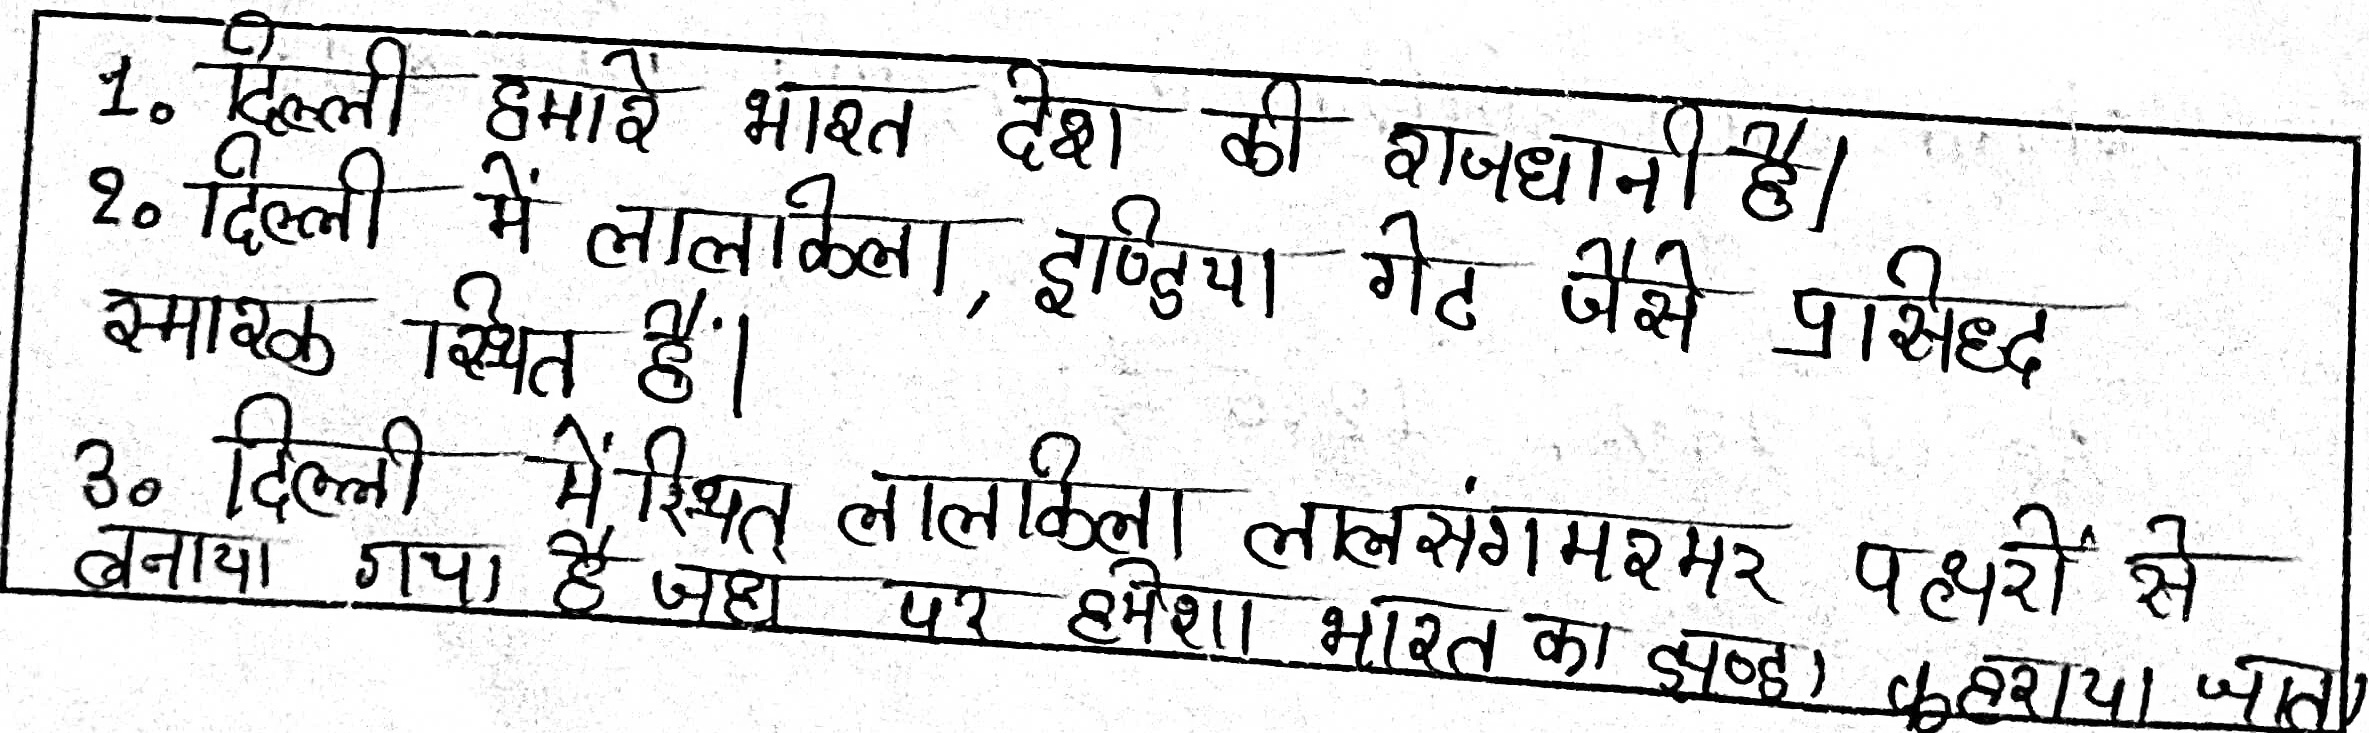 1. दिल्ली हमारे भारत देश की राजधानी है।
2. दिल्ली में लालकिला, इण्डिया गेट जैसे प्रसिध्द
स्मारक स्थित हैं।
3. दिल्ली में स्थित लालकिला लालसंगमरमर पत्थरों से
बनाया गया है जहा पर हमेशा भारत का झण्डा फहराया जाता